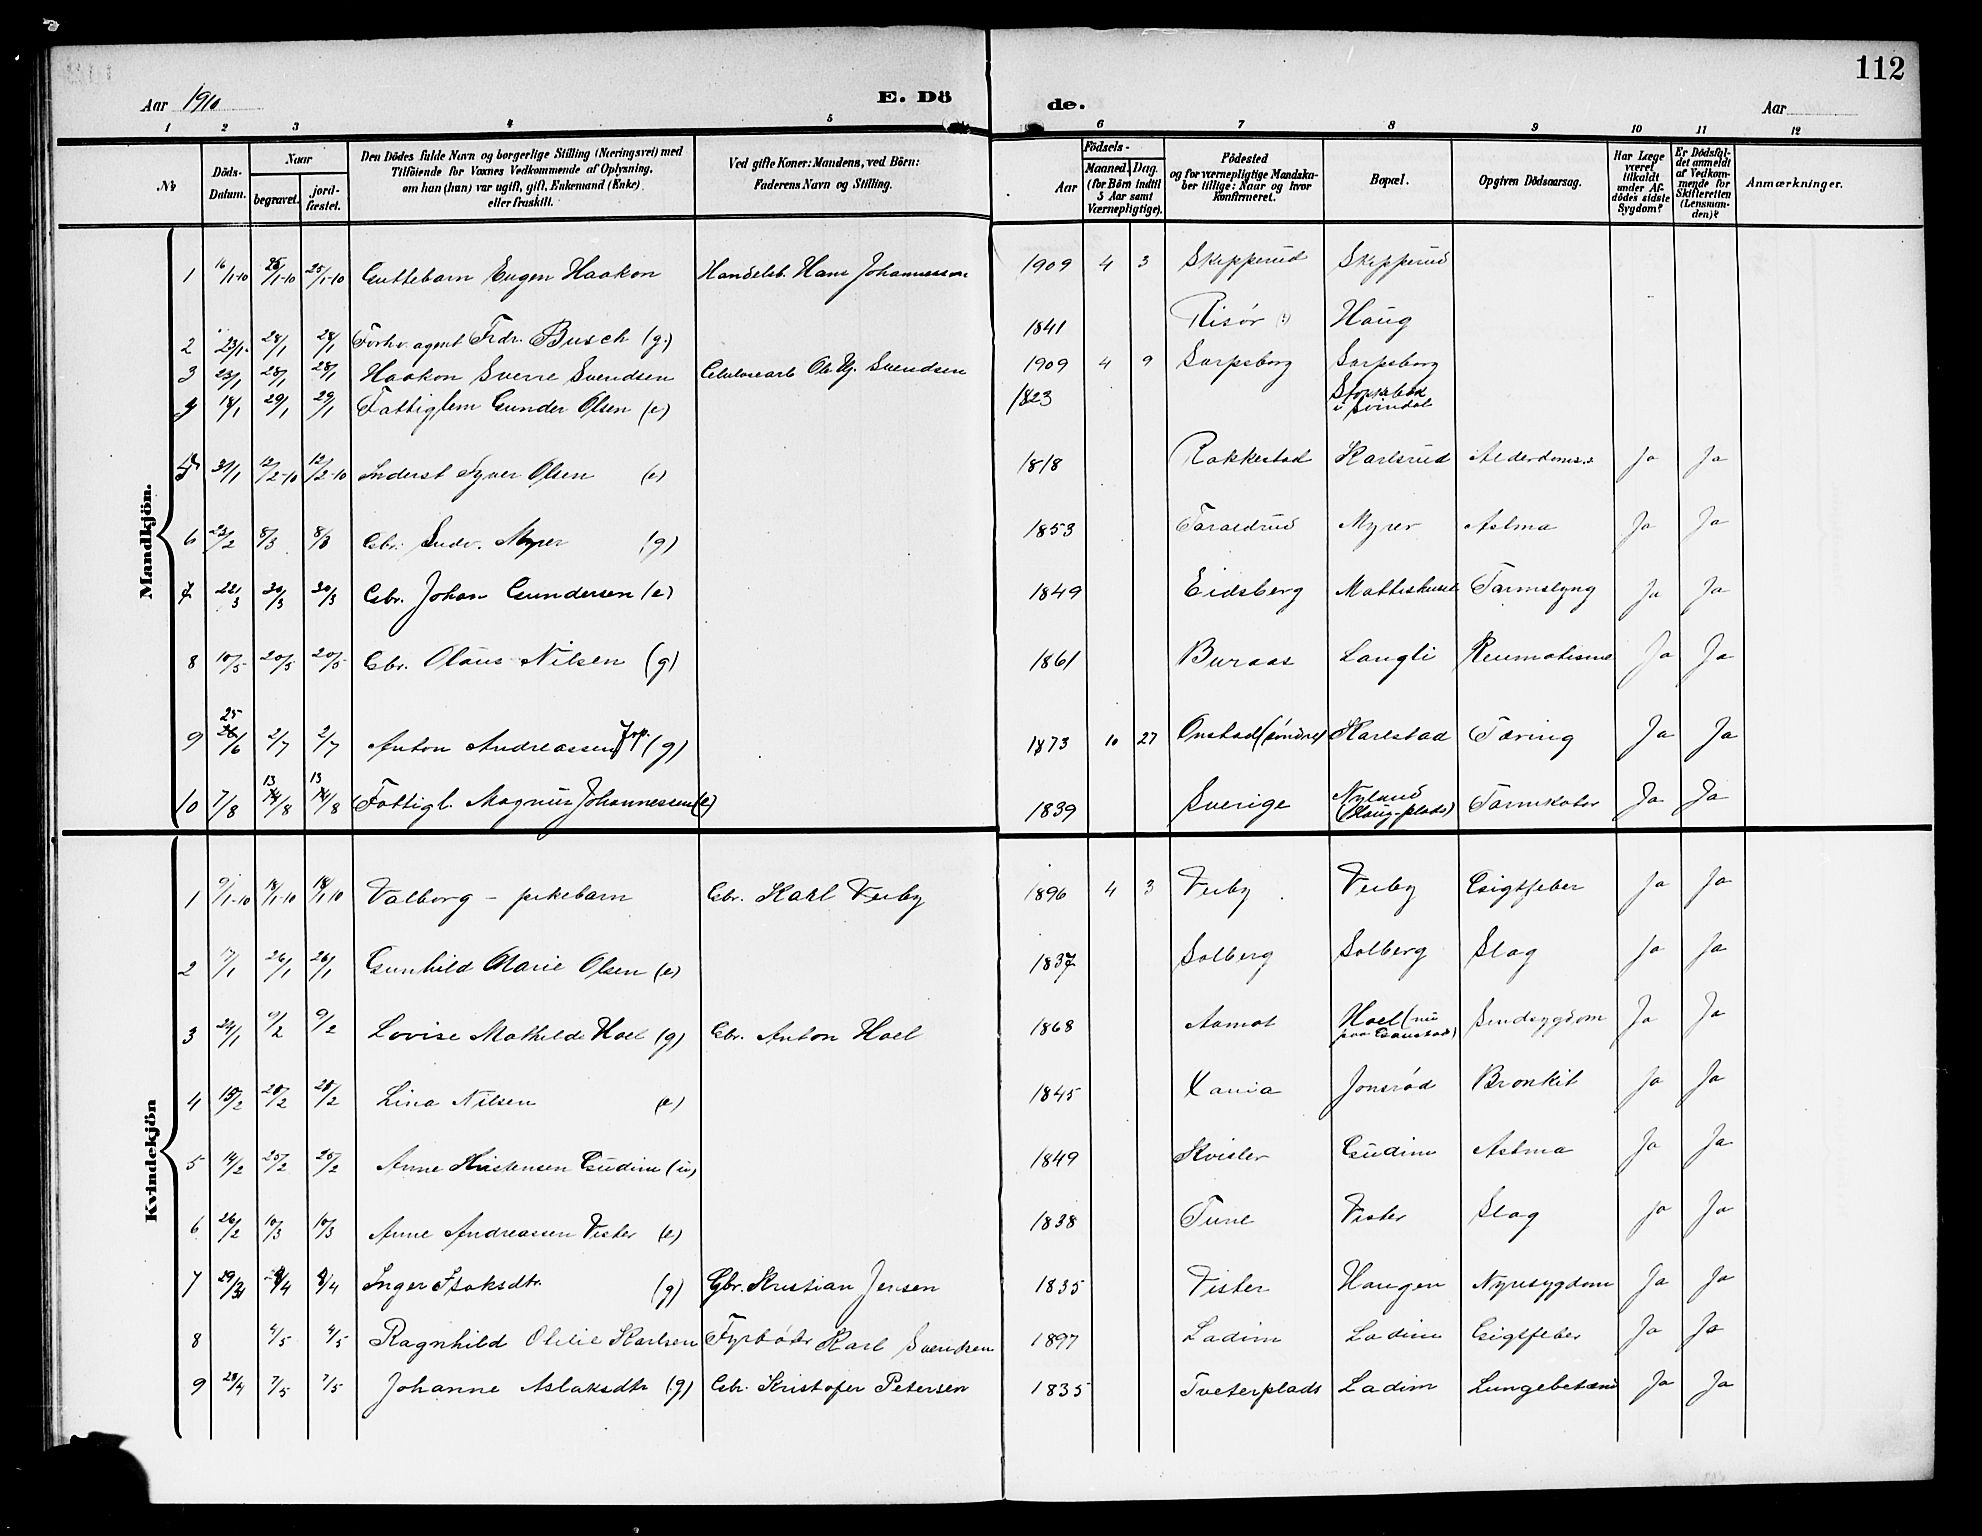 112
Aar 1910 E. Dö de. Aar
1 2 3 4 5 6 7 8 9 10 11 12
No Döds-Datum. Naar begravet. jord-fæstet. Den Dödes fulde Navn og borgerlige Stilling (Næringsvei) med Tilföiende for Voxnes Vedkommende af Oplysning, om han (hun) var ugift, gift, Enkemand (Enke) eller fraskilt. Ved gifte Koner: Mandens, ved Börn: Faderens Navn og Stilling. Födsels- Aar Maaned. Dag. (for Börn indtil 5 Aar samt Værnepligtige). Födested og for værnepligtige Mandska-ber tillige: Naar og hvor Konfirmeret. Bopæl. Opgiven Dödsaarsag. Har Læge været tilkaldt under Af-dödes sidste Sygdom? Er Dödsfal-det anmeldt af Vedkom-mende for Skifteretten (Lensman-den)? Anmærkninger.
Mandkjön.
1 16/1-10 25/1-10 25/1-10 Guttebarn Eugen Haakon Handelsb. Hans Johannesson 1909 4 3 Skipperud Skipperud
2 23/1 28/1 28/1 Forhv. agent Frdr. Busch (g.) 1841 Risør Haug
3 23/1 28/1 28/1 Haakon Sverre Svendsen Celulosearb Ole Hj. Svendsen 1909 4 9 Sarpsborg Sarpsborg
4 18/1 29/1 29/1 Fattiglem Gunder Olsen (e) 1823 i Svindal
5 31/1 12/2-10 12/2-10 Inderst Syver Olsen (e) 1818 Rakkestad Karlsrud Alderdoms.s Ja Ja
6 23/2 8/3 8/3 Gbr. Ludv. Myrer (g) 1853 Taraldrud Myrer Astma Ja Ja
7 22/3 30/3 30/3 Gbr. Johan Gundersen (e) 1849 Eidsberg Mattishuset Tarmslyng Ja Ja
8 10/5 20/5 20/5 Gbr. Olaus Nilsen (g) 1861 Buraas Langli Reumatisme Ja Ja
9 25/6 2/7 2/7 Anton Andreassen (g) 1873 10 27 Onstad (søndre) Karlstad Tæring Ja Ja
10 7/8 13/8 13/8 Fattigl. Magnus Johannessen (e) 1839 Sverige Nylund (Haug-plads) Tarmkatar Ja Ja
Kvindekjön
1 9/1-10 18/1-10 18/1 10 Valborg - pikebarn Gbr. Karl Verby 1896 4 3 Verby Verby Gigtfeber Ja Ja
2 17/1 26/1 26/1 Gunhild Marie Olsen (e) 1837 Solberg Solberg Slag Ja Ja
3 24/1 9/2 9/2 Lovise Mathilde Hoel (g) Gbr. Anton Hoel 1868 Aamot Hoel (nu paa Gaustad) Sindsygdom Ja Ja
4 15/2 28/2 28/2 Lina Nilsen (e) 1845 Xania Jonsrød Bronkit Ja Ja
5 14/2 25/2 25/2 Anne Kristensen Gudim (u) 1849 Kvisler Gudim Astma Ja Ja
6 26/2 10/3 10/3 Anne Andreassen Vister (e) 1838 Tune Vister Slag Ja Ja
7 29/3 8/4 8/4 Inger Isaksdtr. (g) Gbr. Kristian Jensen 1835 Vister Haugen Nyresygdom Ja Ja
8 4/5 4/5 Ragnhild Otilie Karlsen Fyrbøter Karl Svendsen 1897 Ladim Ladim Gigtfeber Ja Ja
9 28/4 7/5 7/5 Johanne Aslaksdtr (g) Gbr. Kristofer Petersen 1835 Tveterplads Ladim Lungebetænd Ja Ja